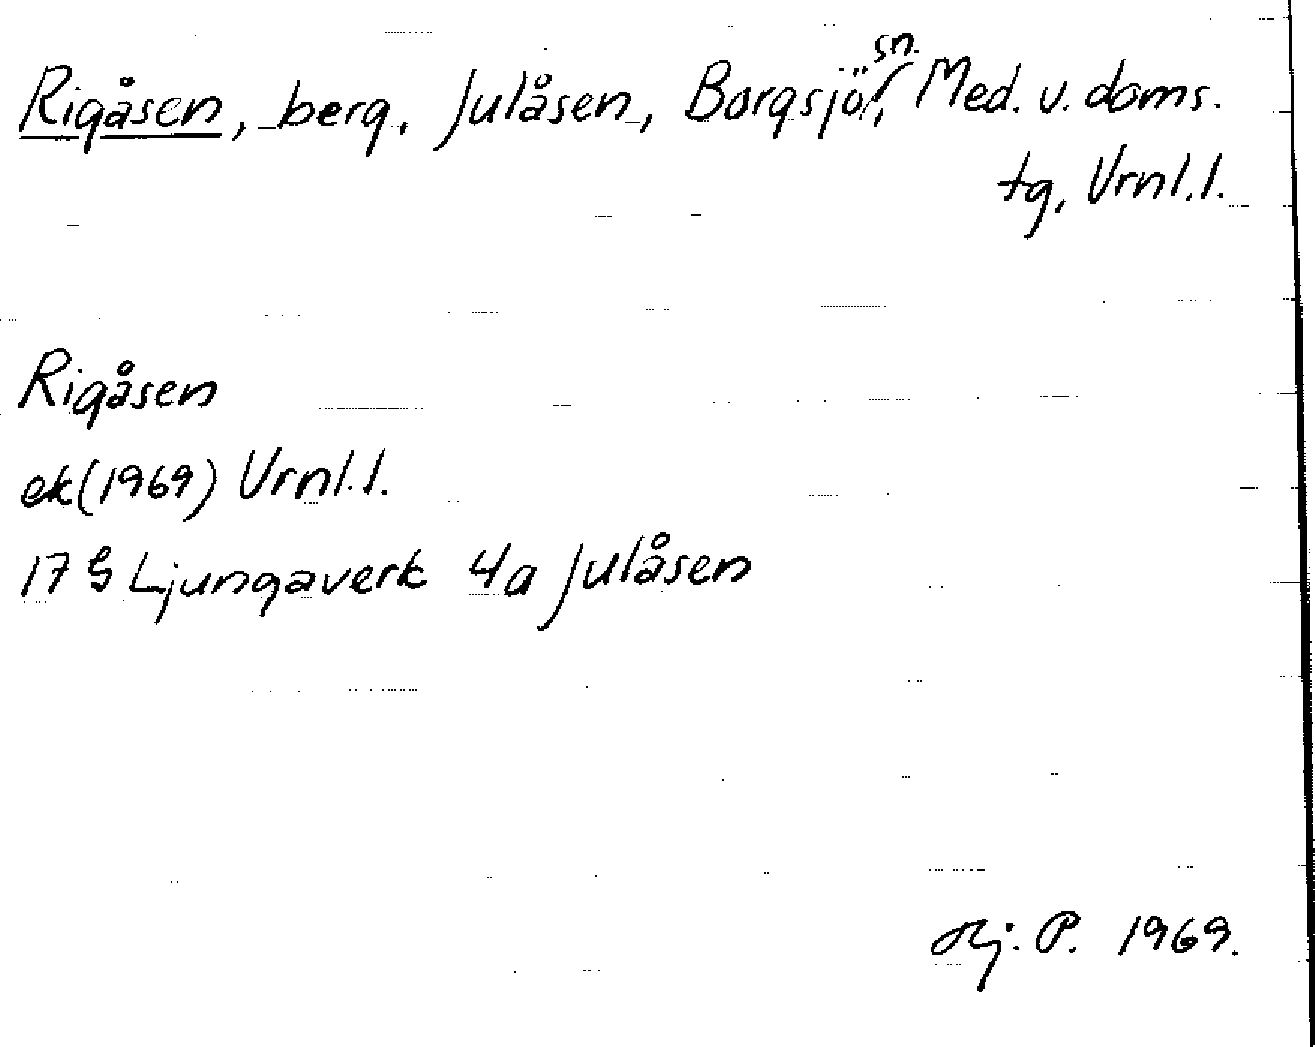 Rigåsen, berg, Julåsen, Borgsjö sn., Med. v. doms.
tg, Vrnl.l.
Rigåsen
ek(1969) Vrnl.l.
17 G Ljungaverk 4a Julåsen
Hj. P. 1969.